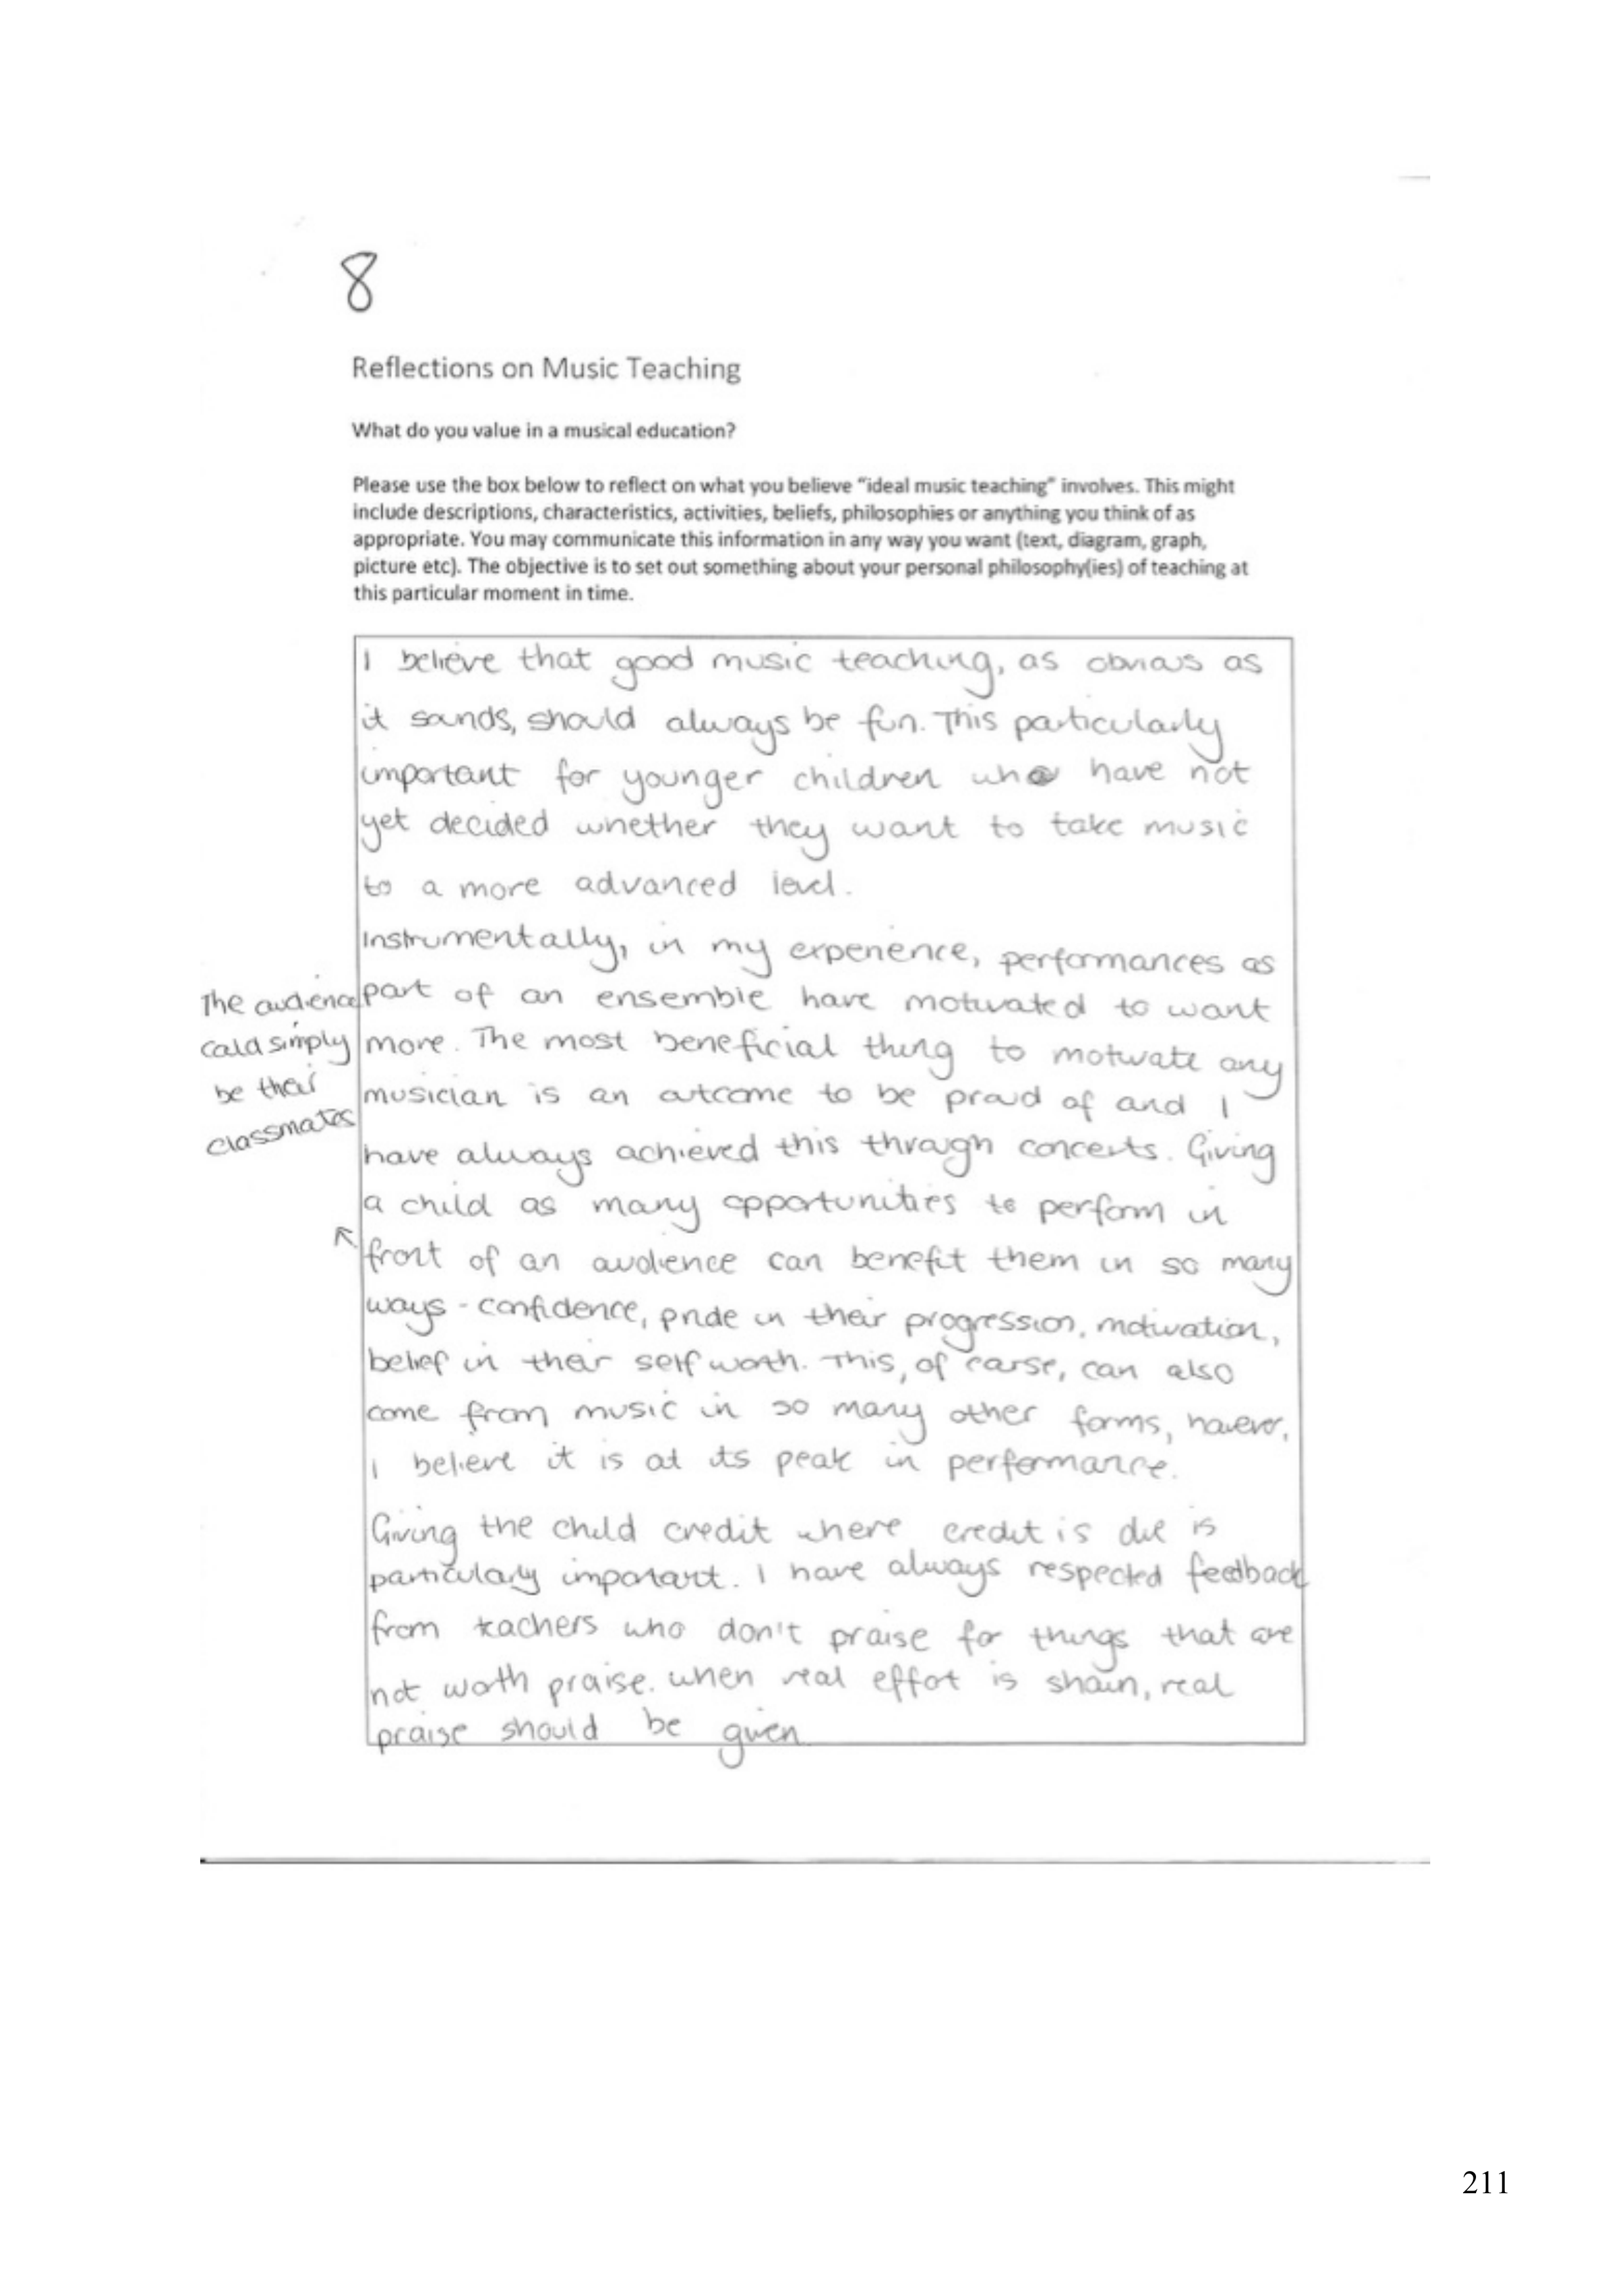 8
Reflections on Music Teaching
What do you value in a musical education?
Please use the box below to reflect on what you believe “ideal music teaching” involves. This might
include descriptions, characteristics, activities, beliefs, philosophies or anything you think of as
appropriate. You may communicate this information in any way you want (text, diagram, graph,
picture etc). The objective is to set out something about your personal philosophy(ies) of teaching at
this particular moment in time.
I believe that good music teaching, as obvious as
it sounds, should always be fun. This particularly
important for younger children who have not
yet decided whether they want to take music
to a more advanced level.
Instrumentally, in my experience, performances as
part of an ensemble have motivated to want
more. The most beneficial thing to motivate any
musician is an outcome to be proud of and I
have always achieved this through concerts. Giving
a child as many opportunities to perform in
front of an audience can benefit them in so many
ways - confidence, pride in their progression, motivation,
belief in their self worth. This, of course, can also
come from music in so many other forms, however,
I believe it is at its peak in performance.
Giving the child credit where credit is due is
particularly important. I have always respected feedback
from teachers who don't praise for things that are
not worth praise. When real effort is shown, real
praise should be given
The audience
could simply
be their
classmates
211